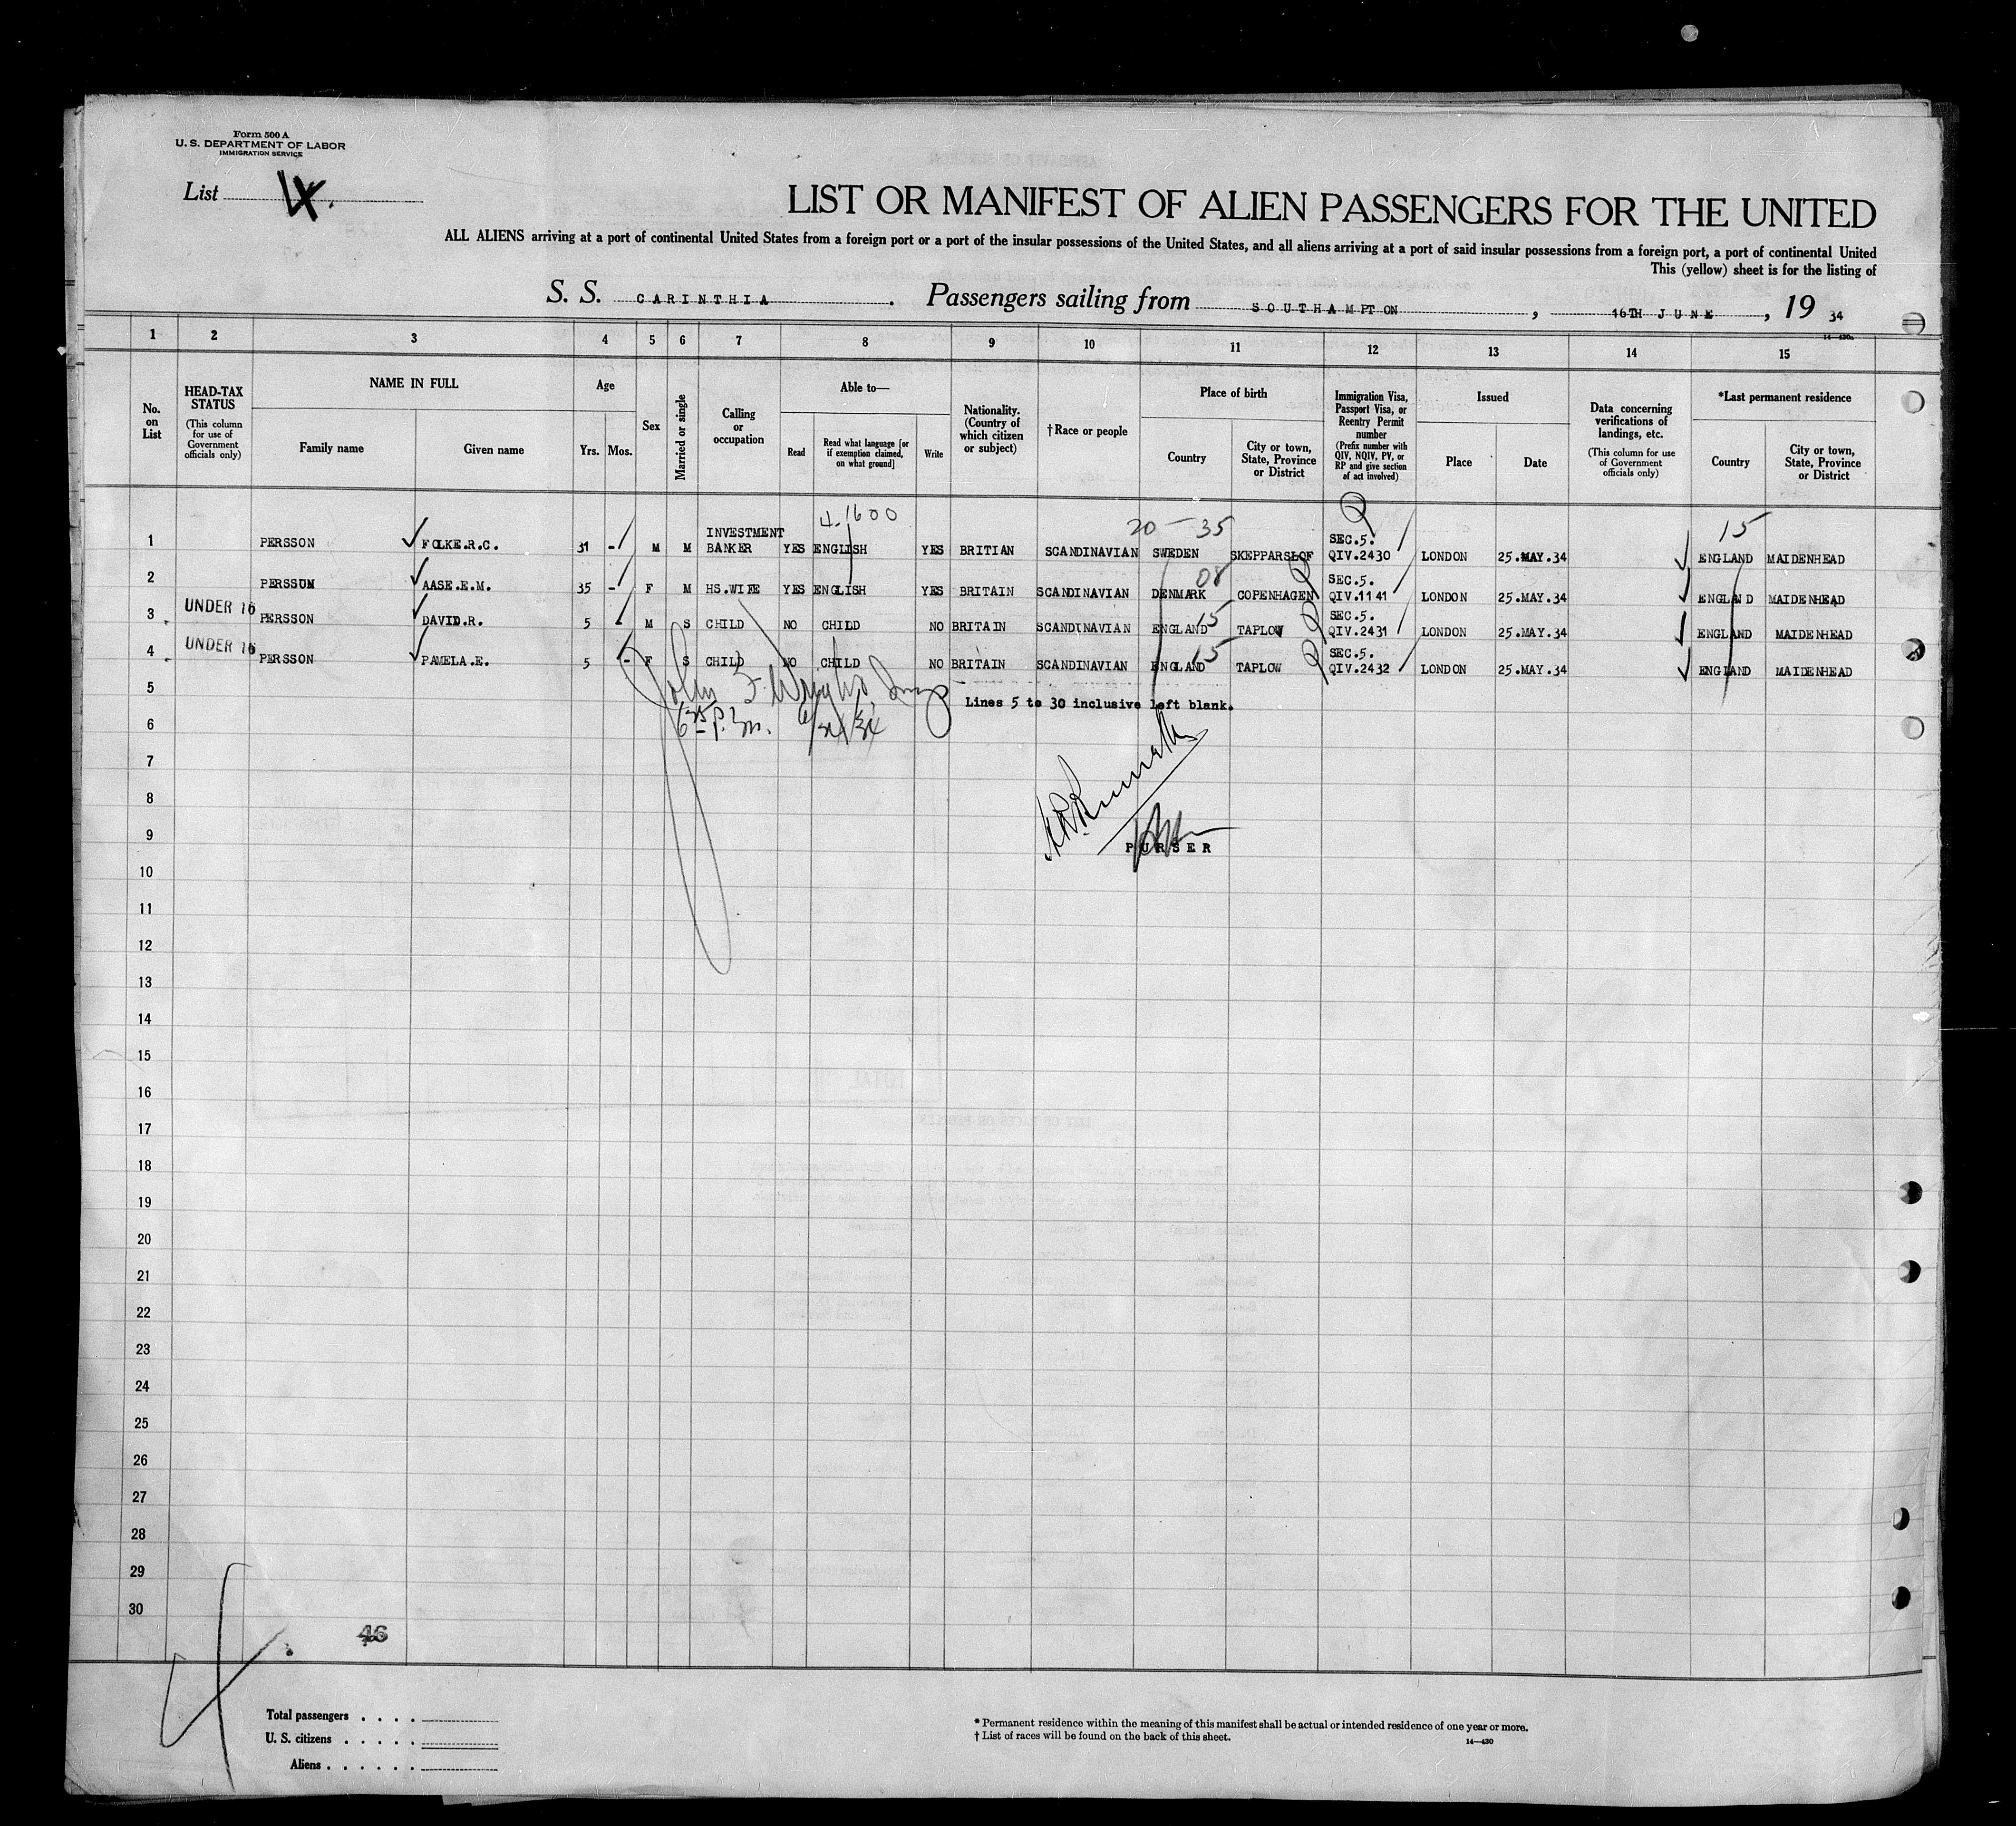 Form 500 A
U. S. DEPARTMENT OF LABOR
IMMIGRATION SERVICE
List
LIST OR MANIFEST OF ALIEN PASSENGERS FOR THE UNITED
ALL ALIENS arriving at a port of continental United States from a foreign port or a port of the insular possessions of the United States, and all aliens arriving at a port of said insular possessions from a foreign port, a port of continental United
This (yellow) sheet is for the listing of
S. S. CARINTHIA . Passengers sailing from SOUTHAMPTON , 16TH JUNE , 19 34
14—430a
1 2 3 4 5 6 7 8 9 10 11 12 13 14 15
No. on List
HEAD-TAX STATUS (This column for use of Government officials only)
NAME IN FULL
Family name
Given name
Age
Yrs.
Mos.
Sex
Married or single
Calling or occupation
Able to—
Read
Read what language [or if exemption claimed, on what ground]
Write
Nationality. (Country of which citizen or subject)
†Race or people
Place of birth
Country
City or town, State, Province or District
Immigration Visa, Passport Visa, or Reentry Permit number (Prefix number with QIV, NQIV, PV, or RP and give section of act involved)
Issued
Place
Date
Data concerning verifications of landings, etc. (This column for use of Government officials only)
*Last permanent residence
Country
City or town, State, Province or District
4-1600
20-35
15
1 PERSSON FOLKE.R.C. 31 - M M INVESTMENT BANKER YES ENGLISH YES BRITIAN SCANDINAVIAN SWEDEN SKEPPARSLOF SEC.5. QIV.2430 LONDON 25.MAY.34 ENGLAND MAIDENHEAD
2 PERSSON AASE.E.M. 35 - F M HS.WIFE YES ENGLISH YES BRITAIN SCANDINAVIAN DENMARK 08 COPENHAGEN SEC.5. QIV.1141 LONDON 25.MAY.34 ENGLAND MAIDENHEAD
3 UNDER 16 PERSSON DAVID.R. 5 - M S CHILD NO CHILD NO BRITAIN SCANDINAVIAN ENGLAND 15 TAPLOW SEC.5. QIV.2431 LONDON 25.MAY.34 ENGLAND MAIDENHEAD
4 UNDER 16 PERSSON PAMELA.E. 5 - F S CHILD NO CHILD NO BRITAIN SCANDINAVIAN ENGLAND 15 TAPLOW SEC.5. QIV.2432 LONDON 25.MAY.34 ENGLAND MAIDENHEAD
5 Lines 5 to 30 inclusive left blank.
John F.
6
7
8
9
PURSER
10
11
12
13
14
15
16
17
18
19
20
21
22
23
24
25
26
27
28
29
30
46
4
Total passengers . . . .
U. S. citizens . . . . .
Aliens . . . . . .
* Permanent residence within the meaning of this manifest shall be actual or intended residence of one year or more.
† List of races will be found on the back of this sheet.
14—430